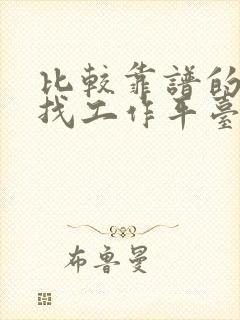 比較靠譜的
找工作平臺
布魯曼